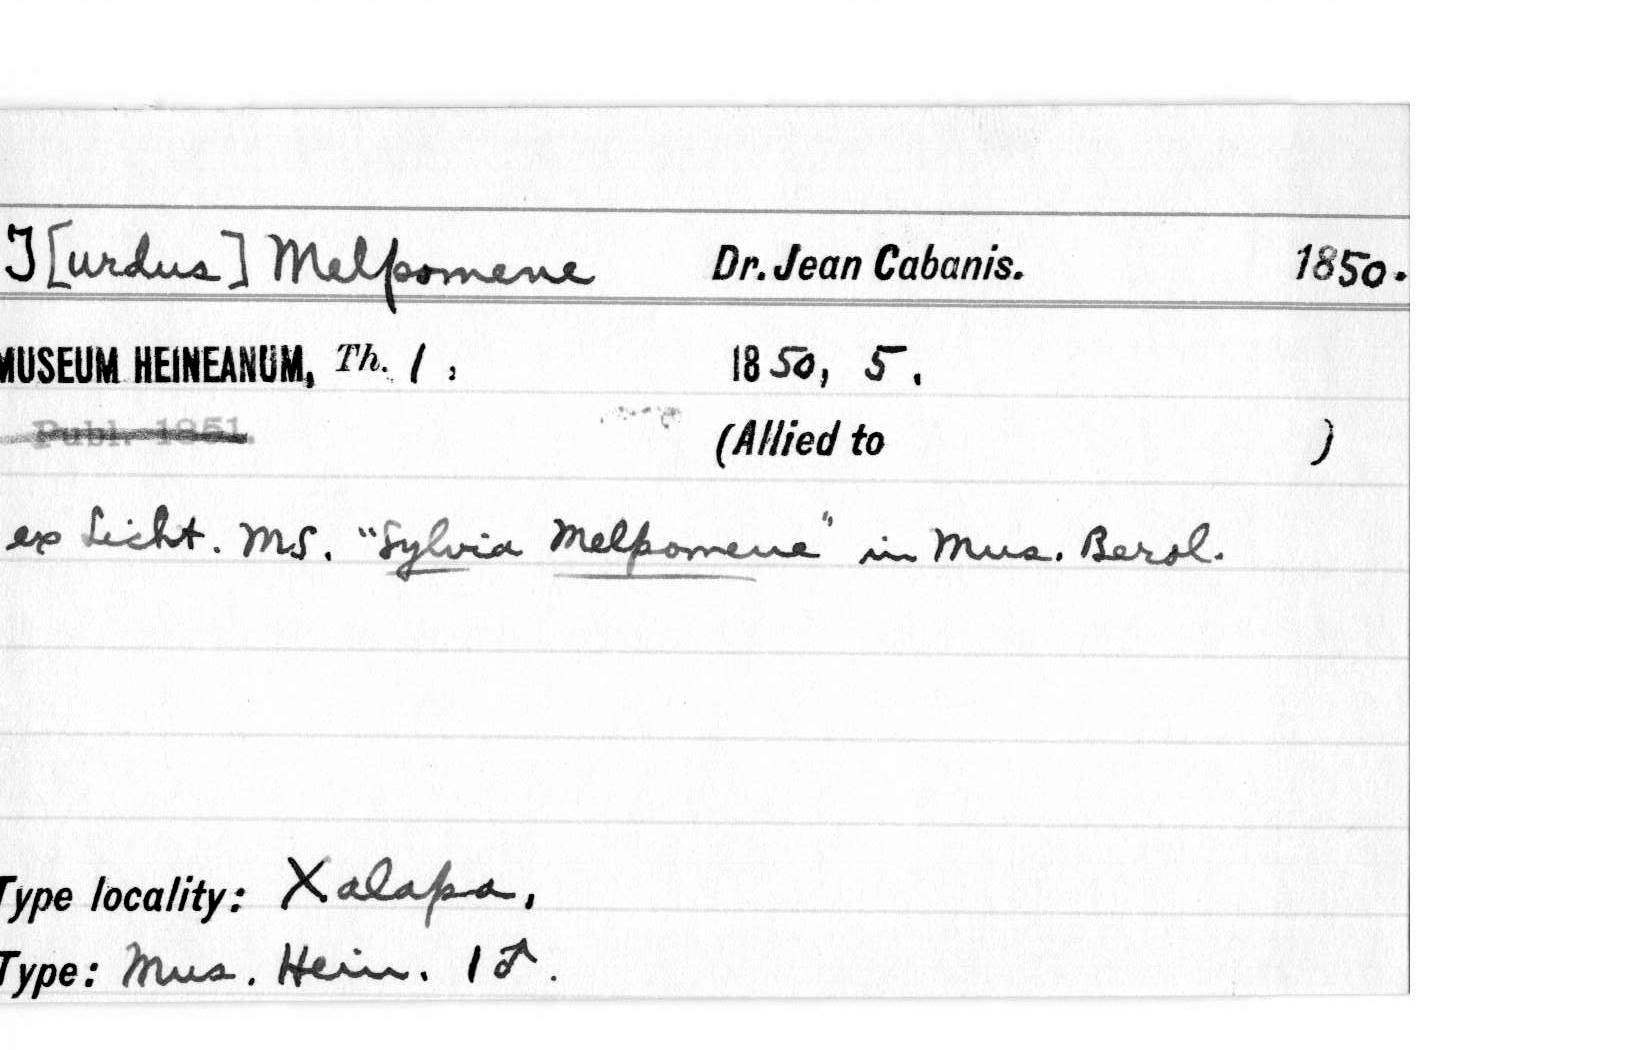 T[urdus] Melpomene Dr. Jean Cabanis. 1850.
MUSEUM HEINEANUM, Th. 1, 1850, 5.
Publ. 1851.
(Allied to )
ex Licht. MS. "Sylvia Melpomene" in Mus. Berol.
Type locality: Xalapa,
Type: Mus. Hein. 1♂.